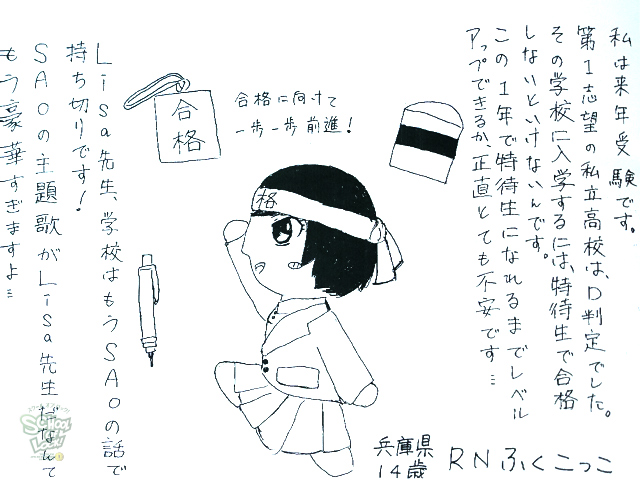 私は来年受験です。
第1志望の私立高校は、D判定でした。
その学校に入学するには、特待生で合格
しないといけないんです。
この1年で特待生になれるまでレベル
アップできるか、正直とても不安です…
合格に向けて
一歩一歩前進!
合格
格
Lisa先生、学校はもうSAOの話で
持ち切りです!
SAOの主題歌がLisa先生だなんて
もう豪華すぎますよ…
兵庫県
14歳
RNふくこっこ
SCHOOL
LOCK!